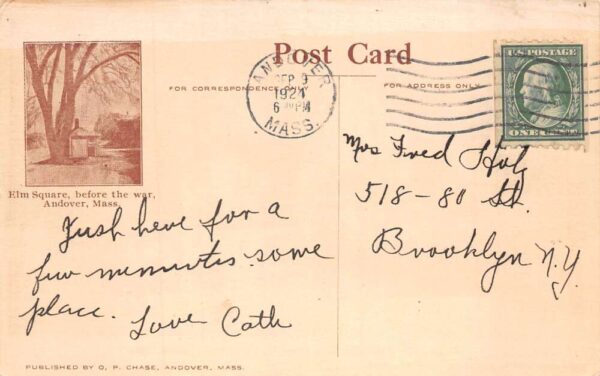 Post Card
FOR CORRESPONDENCE ONLY
FOR ADDRESS ONLY
ANDOVER
SEP 9
1921
6 PM
MASS.
U.S. POSTAGE
ONE CENT
Elm Square, before the war,
Andover, Mass.
Just here for a
few minutes. some
place. Love Cath
Mrs Fred
518-80 St.
Brooklyn N.Y.
PUBLISHED BY O. P. CHASE, ANDOVER, MASS.